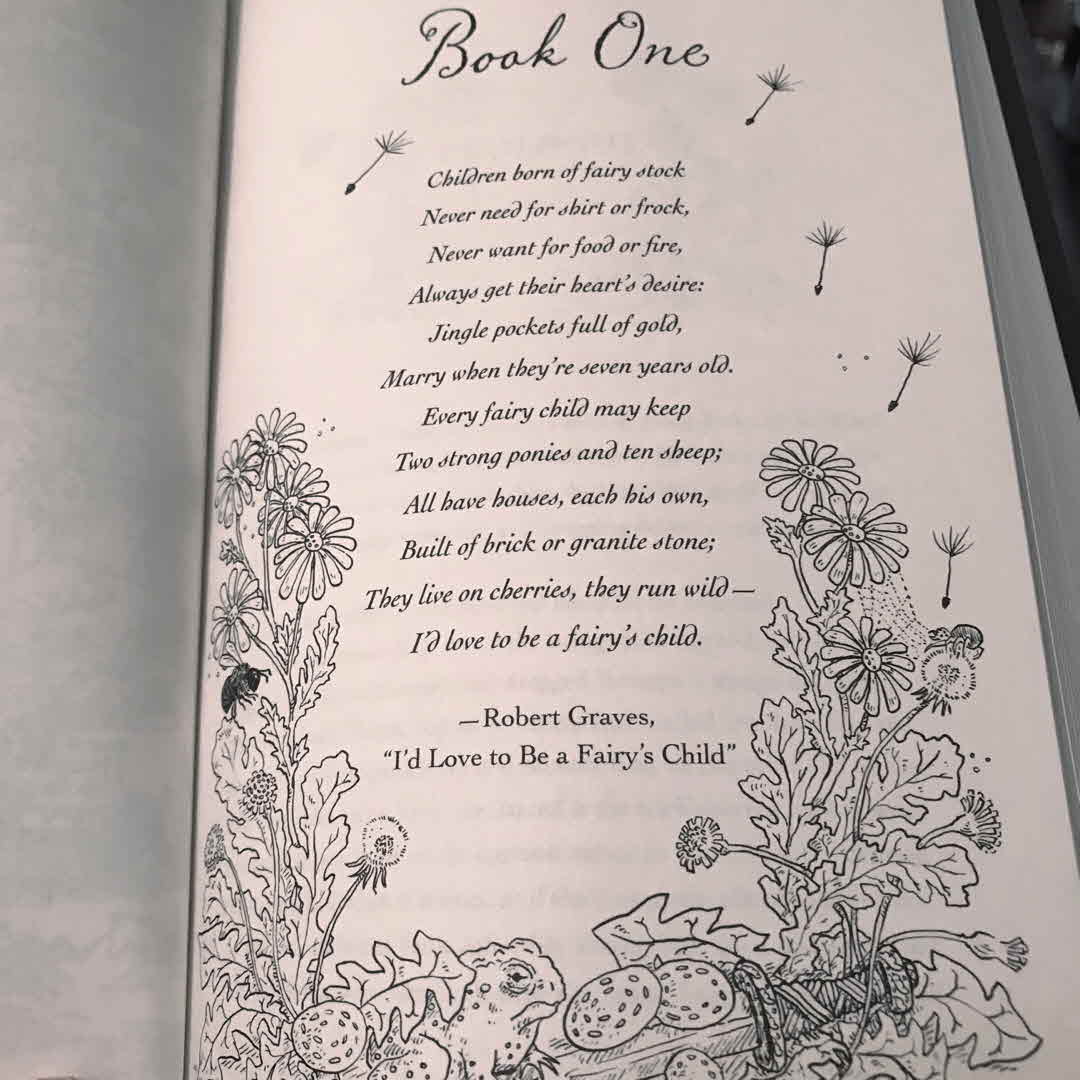 Book One
Children born of fairy stock
Never need for shirt or frock,
Never want for food or fire,
Always get their heart's desire:
Jingle pockets full of gold,
Marry when they're seven years old.
Every fairy child may keep
Two strong ponies and ten sheep;
All have houses, each his own,
Built of brick or granite stone;
They live on cherries, they run wild—
I'd love to be a fairy's child.
—Robert Graves,
“I'd Love to Be a Fairy's Child”